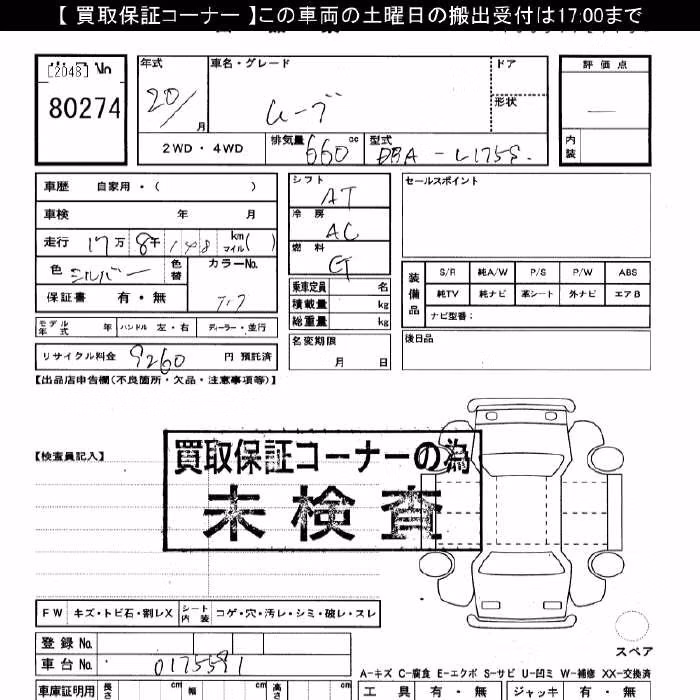 【 買取保証コーナー 】この車両の土曜日の搬出受付は17:00まで
[2048] No
80274
年式 車名・グレード ドア 評価点
20/ 月 ムーブ 形状
2WD・4WD 排気量 660 cc 型式 DBA-L175S. 内装
車歴 自家用・( )
車検 年 月
走行 17万 8千 148 km マイル( )
色 シルバー 色替 カラーNo.
保証書 有・無
モデル年式 年 ハンドル 左・右 ディーラー・並行
リサイクル料金 9260 円 預託済
シフト AT
冷房 AC
燃料 G
乗車定員 名
積載量 kg
総重量 kg
名変期限 月 日
セールスポイント
装備品 S/R 純A/W P/S P/W ABS
純TV 純ナビ 革シート 外ナビ エアB
ナビ型番:
後日品
【出品店申告欄(不良箇所・欠品・注意事項等)】
【検査員記入】
買取保証コーナーの為
未検査
FW キズ・トビ石・割レX シート内装 コゲ・穴・汚レ・シミ・破レ・スレ
登録 No.
車台No. 0175591
スペア
A-キズ C-腐食 E-エクボ S-サビ U-凹ミ W-補修 XX-交換済
車庫証明用 長さ cm 幅 cm 高さ cm 工具 有・無 ジャッキ 有・無